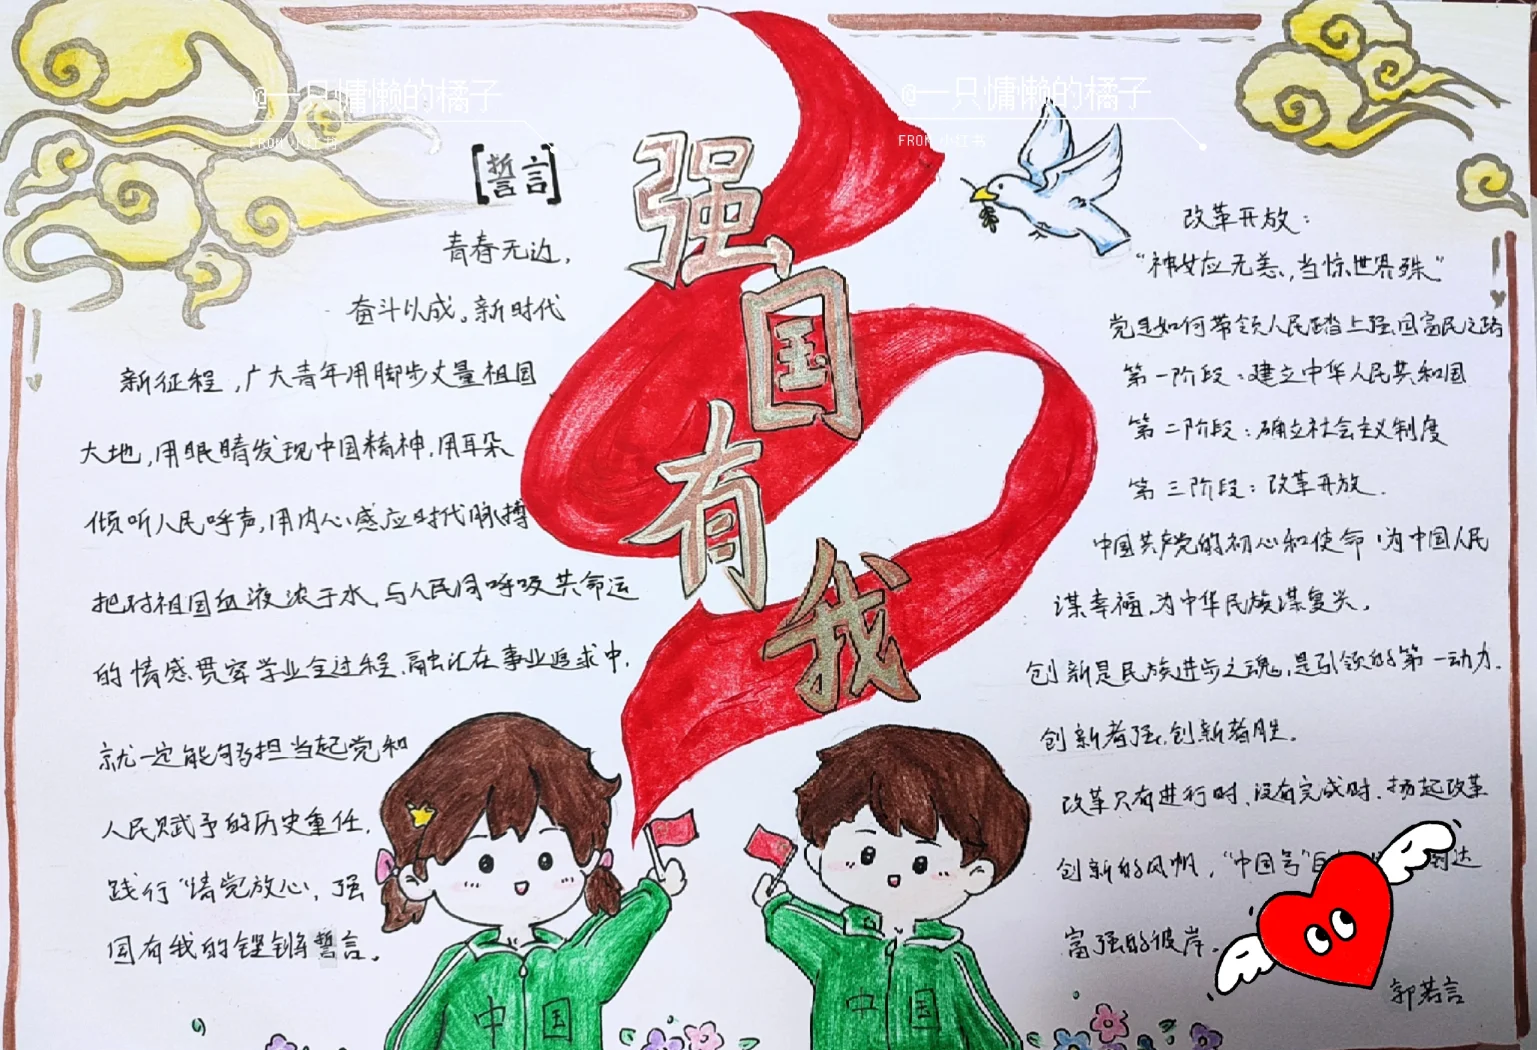 @一只慵懒的橘子
FROM 小红书
@一只慵懒的橘子
FROM 小红书
强国有我
[誓言]
青春无边,
奋斗以成。新时代
新征程,广大青年用脚步丈量祖国
大地,用眼睛发现中国精神,用耳朵
倾听人民呼声,用内心感应时代脉搏
把对祖国血液浓于水,与人民同呼吸共命运
的情感贯穿学业全过程、融汇在事业追求中,
就一定能够担当起党和
人民赋予的历史重任,
践行“请党放心、强
国有我的铿锵誓言。
改革开放:
“神女应无恙,当惊世界殊”
党是如何带领人民踏上强国富民之路
第一阶段:建立中华人民共和国
第二阶段:确立社会主义制度
第三阶段:改革开放.
中国共产党的初心和使命:为中国人民
谋幸福,为中华民族谋复兴。
创新是民族进步之魂,是引领的第一动力.
创新者强,创新者胜。
改革只有进行时、没有完成时.扬起改革
创新的风帆,“中国号”到达
富强的彼岸。
郭若言
中国
中国